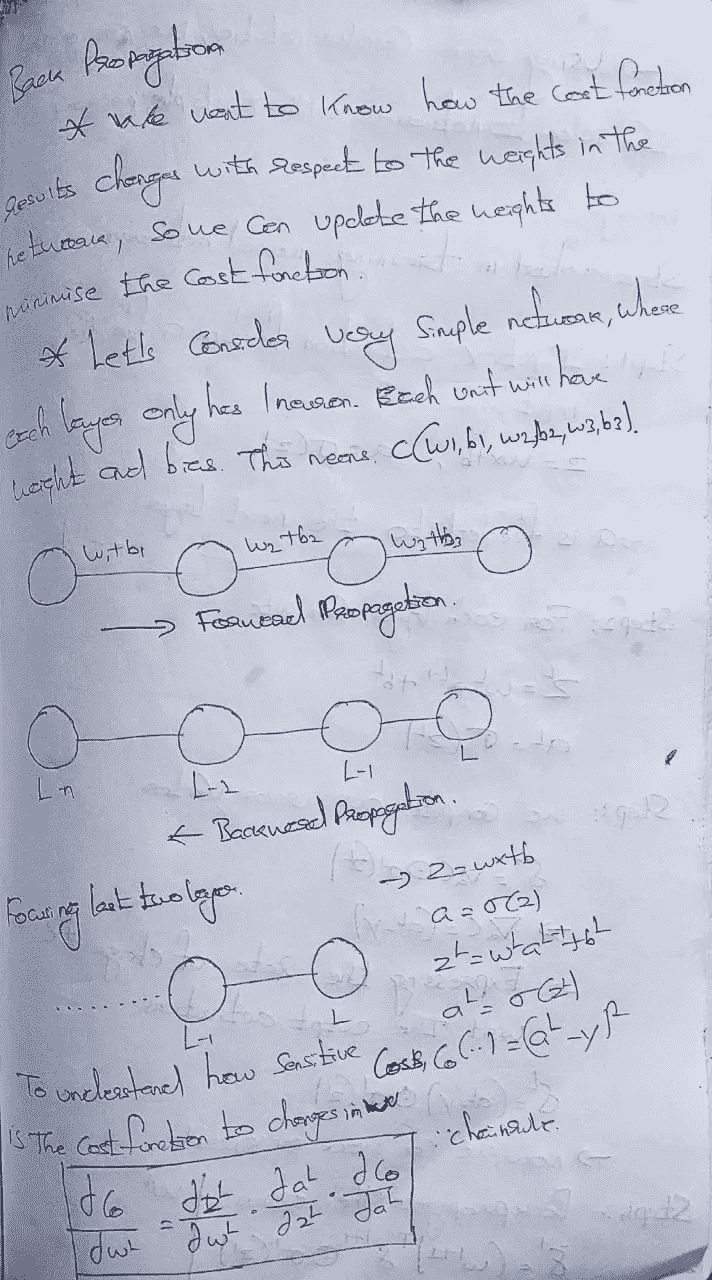 Back Propagation
* We want to Know how the cost function
results changes with respect to the weights in the
network, so we can update the weights to
minimise the cost function.
* Let's Consider very Simple network, where
each layer only has 1 neuron. Each unit will have
weight and bias. This means. C(w1,b1, w2,b2, w3,b3).
w1+b1 w2+b2 w3+b3
→ Forward Propagation.
L-n L-2 L-1 L
← Backward Propagation.
Focusing last two layer.
→ z = wx+b
a = σ(z)
z^L = w^L a^{L-1} + b^L
a^L = σ(z^L)
.......... L-1 L
Cost, C₀(...) = (a^L - y)^2
To understand how Sensitive
is The Cost function to changes in w
∵ chainrule.
∂C₀/∂w^L = ∂z^L/∂w^L . ∂a^L/∂z^L . ∂C₀/∂a^L